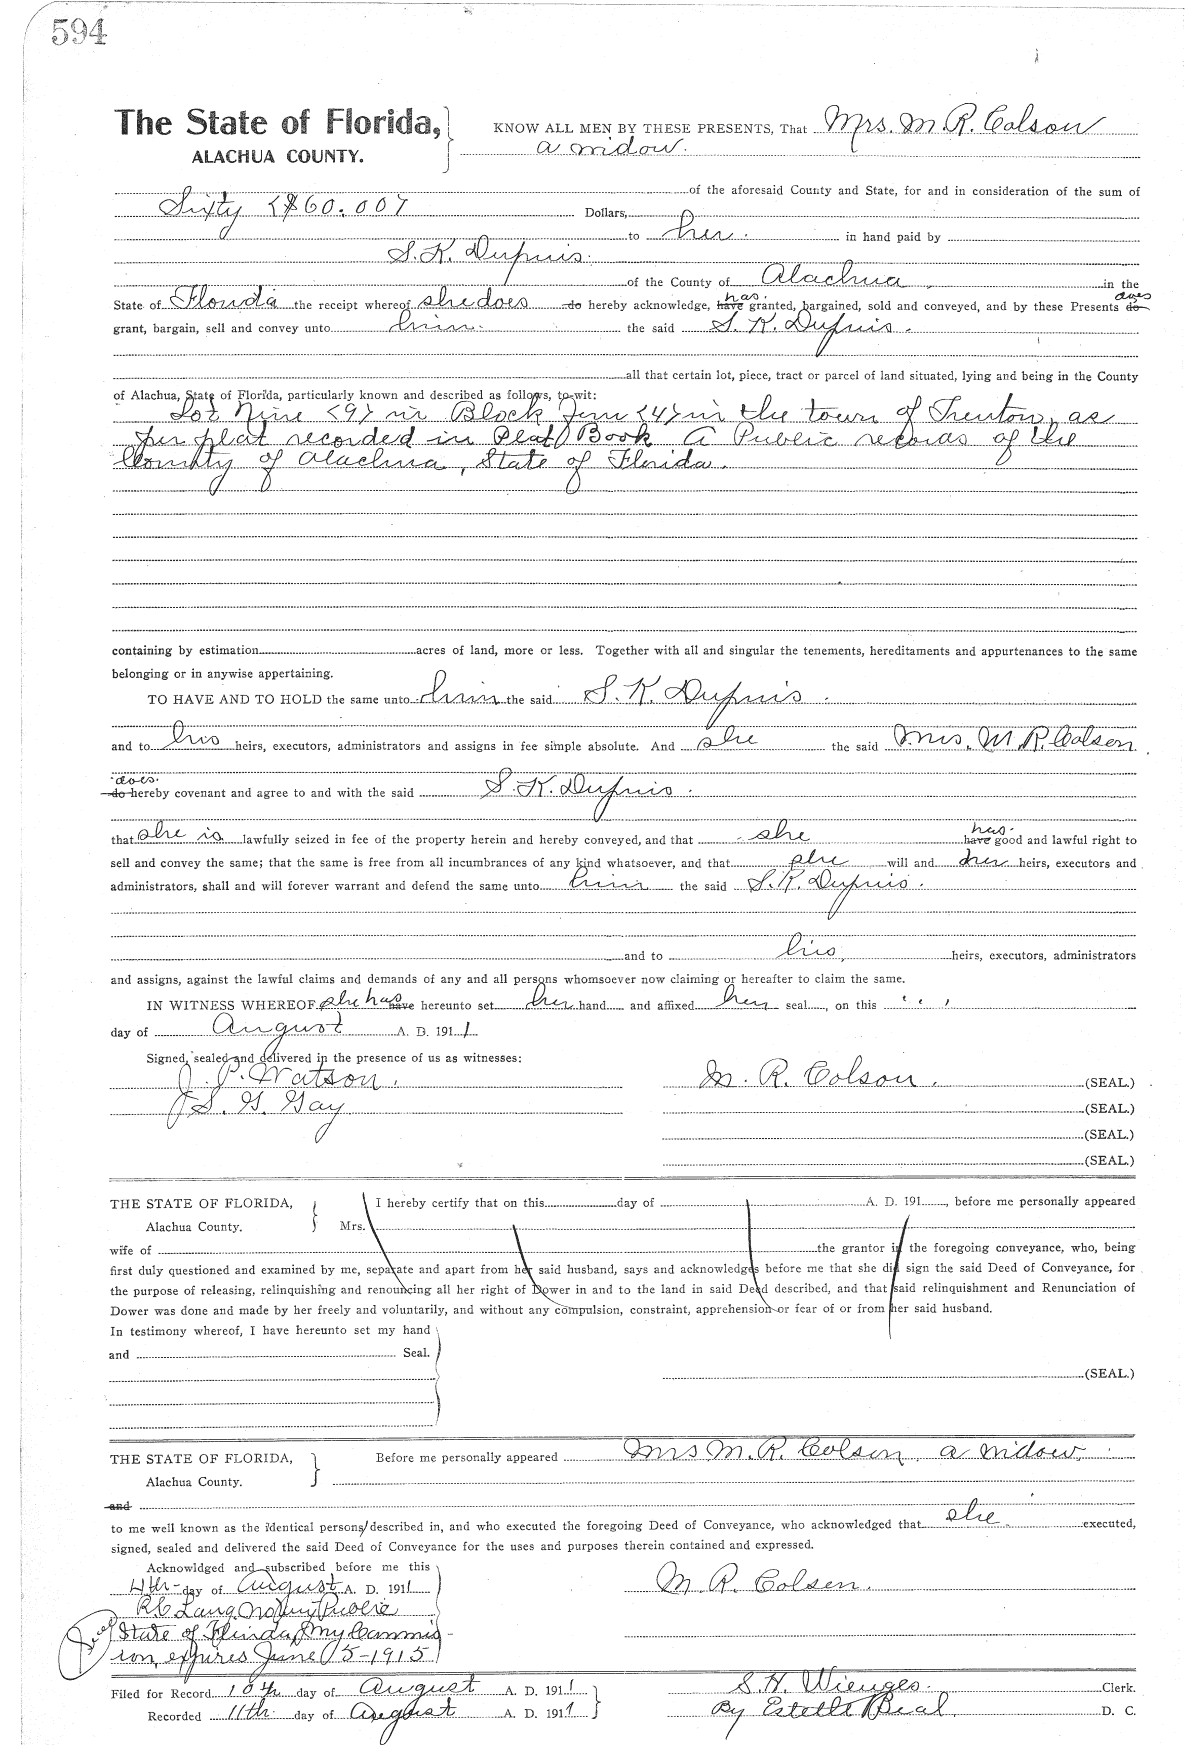 594
The State of Florida,
ALACHUA COUNTY.
KNOW ALL MEN BY THESE PRESENTS, That Mrs. M. R. Colson
a widow.
of the aforesaid County and State, for and in consideration of the sum of
Sixty <$60.00> Dollars,
to her. in hand paid by
S. K. Dupuis.
of the County of Alachua, in the
State of Florida the receipt whereof she does do hereby acknowledge, have has. granted, bargained, sold and conveyed, and by these Presents do does
grant, bargain, sell and convey unto him. the said S. K. Dupuis.
all that certain lot, piece, tract or parcel of land situated, lying and being in the County
of Alachua, State of Florida, particularly known and described as follows, to-wit:
Lot Nine <9> in Block Four <4> in the town of Trenton, as
per plat recorded in Plat Book A Public records of the
County of Alachua, State of Florida.
containing by estimation acres of land, more or less. Together with all and singular the tenements, hereditaments and appurtenances to the same
belonging or in anywise appertaining.
TO HAVE AND TO HOLD the same unto him the said S. K. Dupuis.
and to his heirs, executors, administrators and assigns in fee simple absolute. And she the said Mrs. M. R. Colson
does.
do hereby covenant and agree to and with the said S. K. Dupuis.
that she is lawfully seized in fee of the property herein and hereby conveyed, and that she have has. good and lawful right to
sell and convey the same; that the same is free from all incumbrances of any kind whatsoever, and that she will and her heirs, executors and
administrators, shall and will forever warrant and defend the same unto him the said S. K. Dupuis.
and to his, heirs, executors, administrators
and assigns, against the lawful claims and demands of any and all persons whomsoever now claiming or hereafter to claim the same.
IN WITNESS WHEREOF she has have hereunto set her hand and affixed her seal, on this
day of August A. D. 1911.
Signed, sealed and delivered in the presence of us as witnesses:
J. P. Watson. M. R. Colson. (SEAL.)
J. S. G. Gay (SEAL.)
(SEAL.)
(SEAL.)
THE STATE OF FLORIDA,
Alachua County.
I hereby certify that on this day of A. D. 191, before me personally appeared
Mrs.
wife of the grantor in the foregoing conveyance, who, being
first duly questioned and examined by me, separate and apart from her said husband, says and acknowledges before me that she did sign the said Deed of Conveyance, for
the purpose of releasing, relinquishing and renouncing all her right of Dower in and to the land in said Deed described, and that said relinquishment and Renunciation of
Dower was done and made by her freely and voluntarily, and without any compulsion, constraint, apprehension or fear of or from her said husband.
In testimony whereof, I have hereunto set my hand
and Seal.
(SEAL.)
THE STATE OF FLORIDA,
Alachua County.
Before me personally appeared Mrs M. R. Colson, a widow,
and
to me well known as the identical persons described in, and who executed the foregoing Deed of Conveyance, who acknowledged that she executed,
signed, sealed and delivered the said Deed of Conveyance for the uses and purposes therein contained and expressed.
Acknowldged and subscribed before me this
4th- day of August A. D. 1911 M. R. Colsen.
R.C. Lang. Notary Public
State of Florida, My Commis-
ion, expires June 5-1915
Seal
Filed for Record 10th day of August A. D. 1911 S. H. Wienges. Clerk.
Recorded 11th day of August A. D. 1911 By Estelle Beal. D. C.